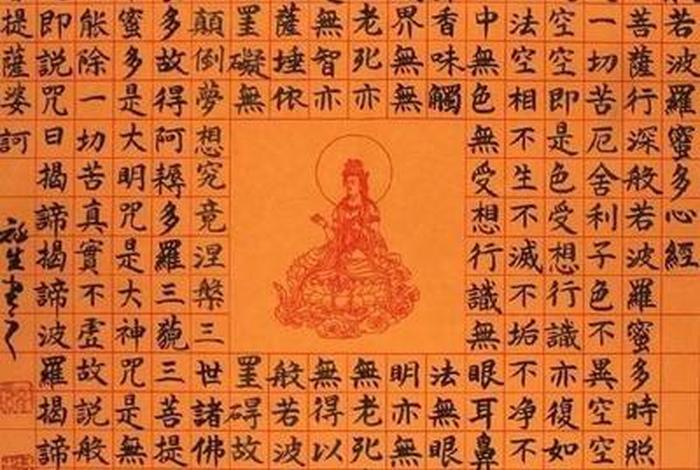 若波羅蜜多心經
菩薩行深般若波羅蜜多時照
一切苦厄舍利子色不異空空
空空即是色受想行識亦復如
法空相不生不滅不垢不净不
中無色無受想行識無眼耳鼻
香味觸法無眼
界無無明亦無
老死亦無老死
無智亦無得以
薩埵依般若波
罣礙無罣碍故
顛倒夢想究竟涅槃三世諸佛
多故得阿耨多羅三藐三菩提
蜜多是大明咒是大神咒是無
能除一切苦真實不虛故説般
即説咒曰揭諦揭諦波羅揭諦
提薩婆訶